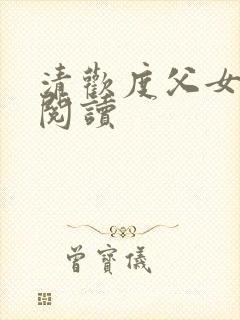 清歡度父女
閱讀
曾寶儀